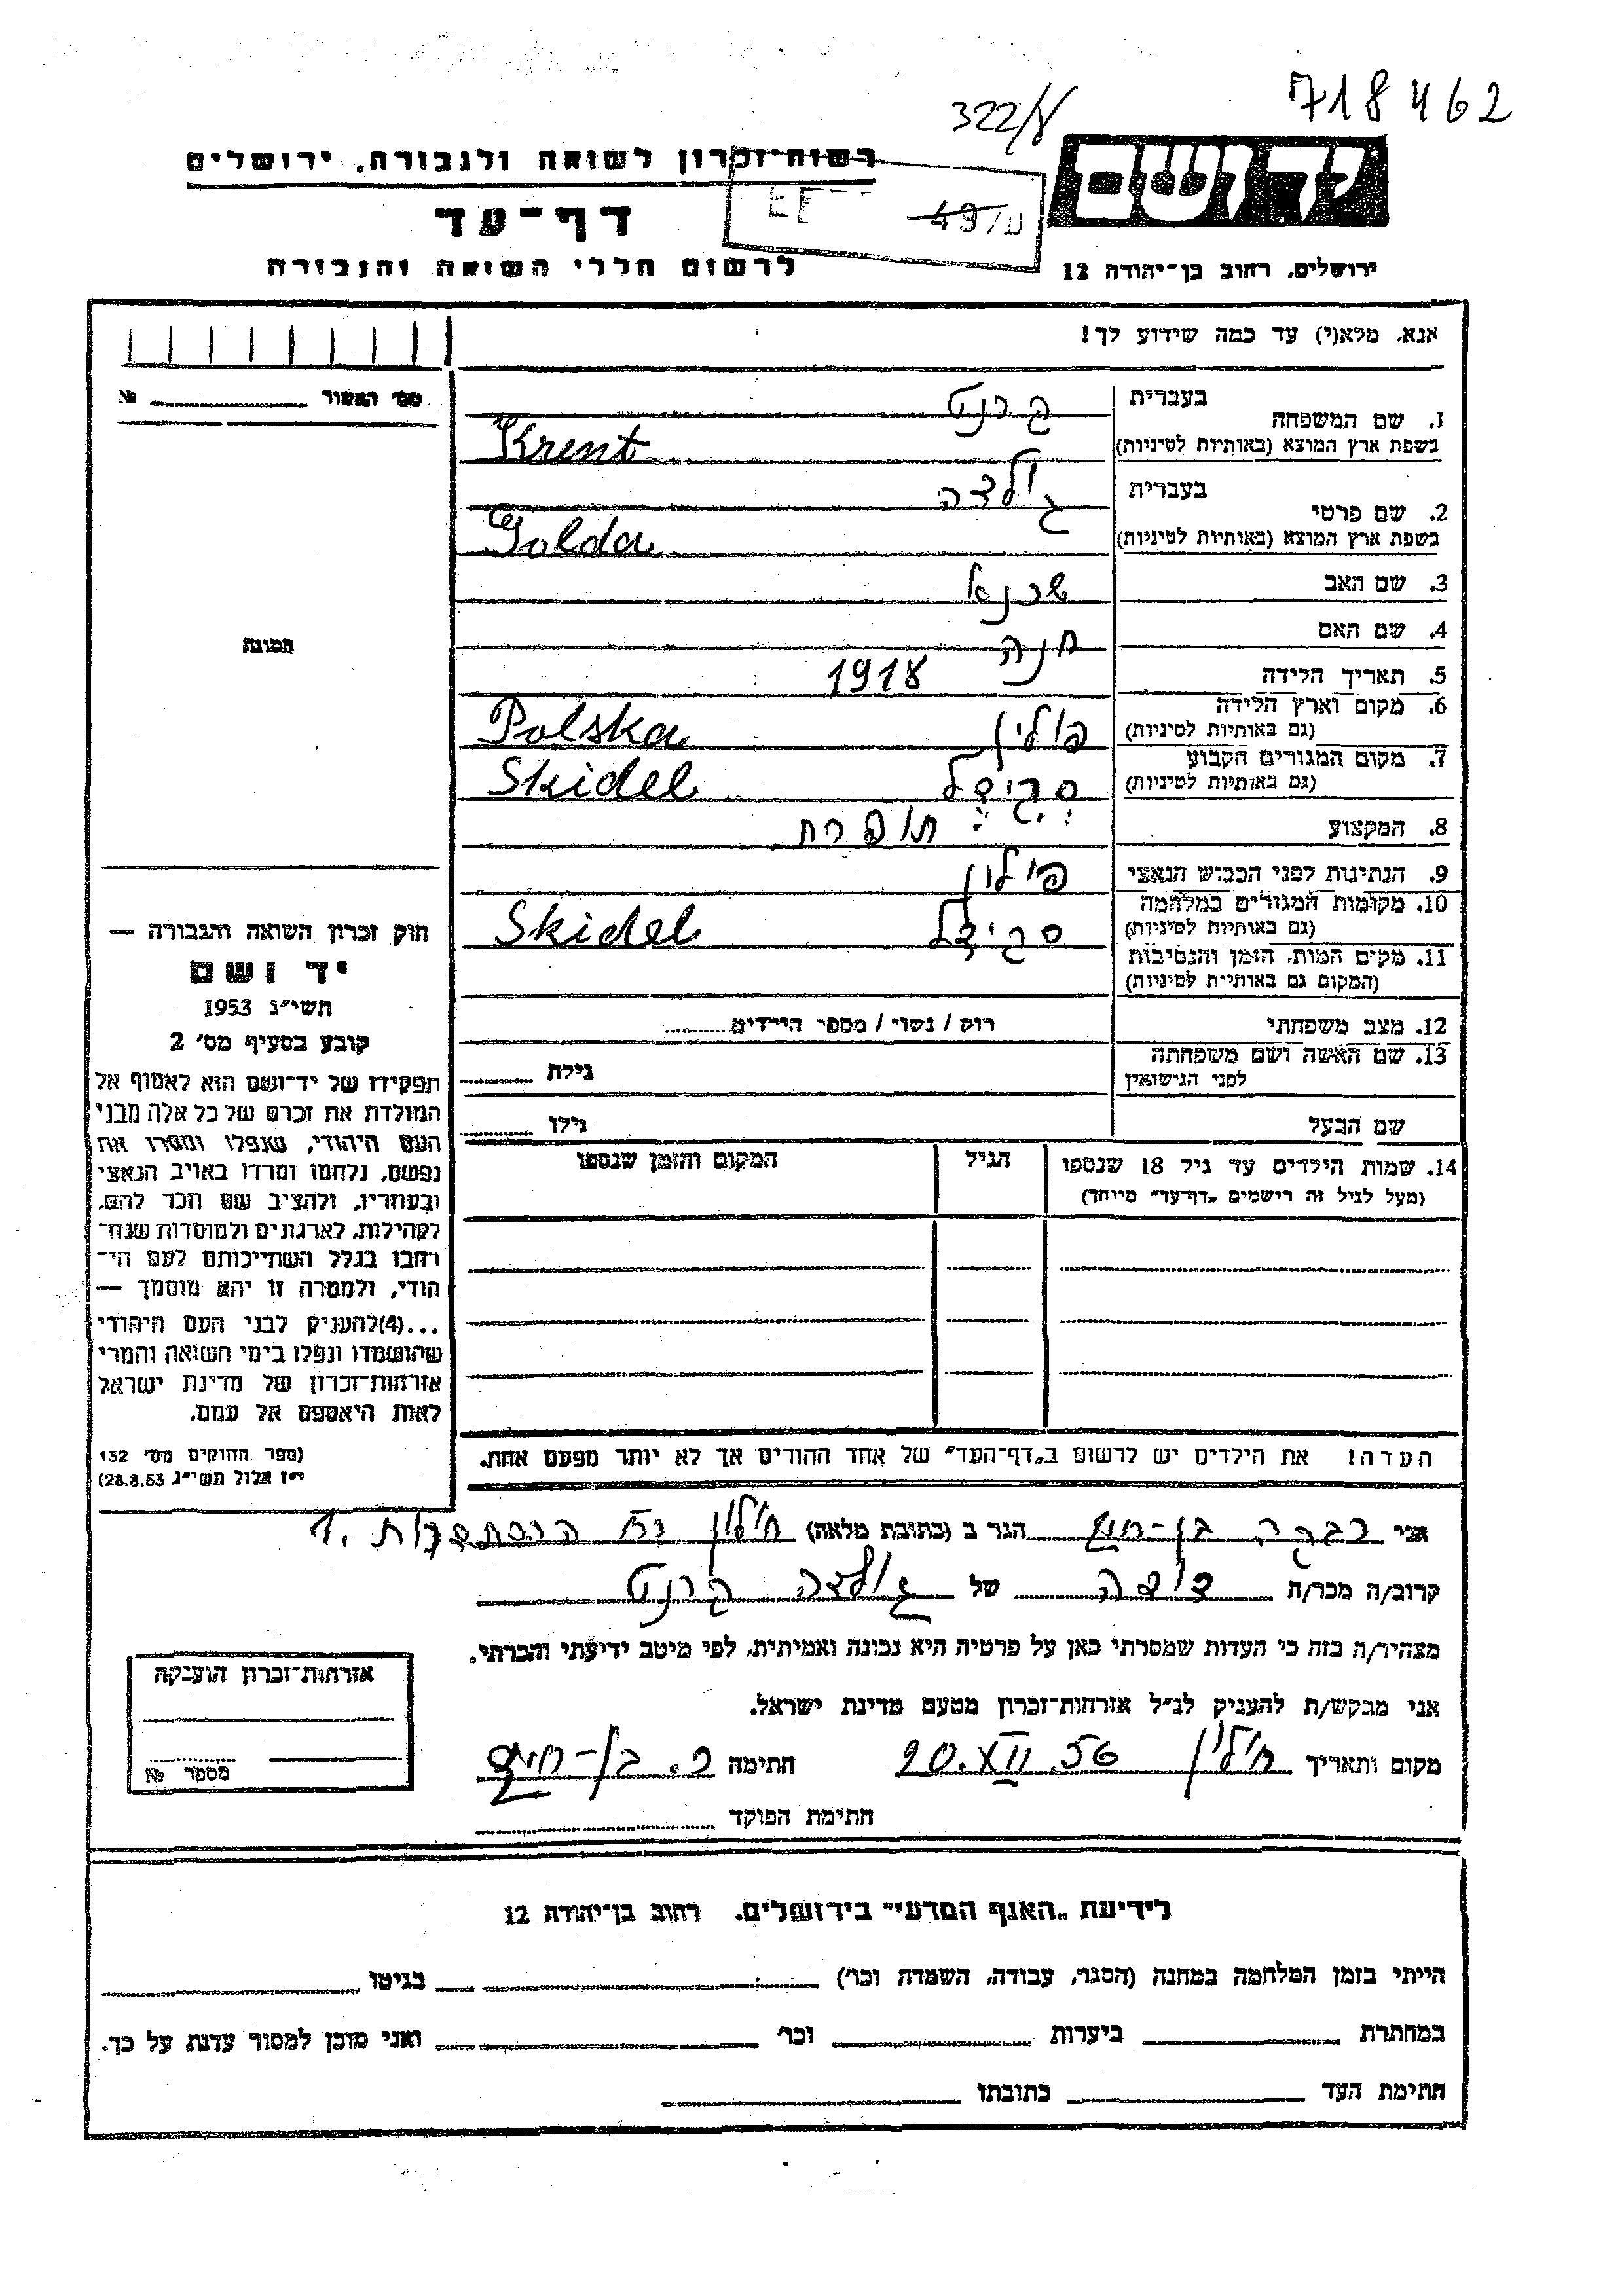 718462
322/γ
יד ושם
רשות־זכרון לשואה ולגבורה, ירושלים
דף־עד
49/ע
לרשום חללי השואה והגבורה
ירושלים, רחוב בן־יהודה 12
אנא, מלא(י) עד כמה שידוע לך!
מס׳ האשור № 
1. שם המשפחה
בעברית קרנט
בשפת ארץ המוצא (באותיות לטיניות) Krent
2. שם פרטי
בעברית גולדה
בשפת ארץ המוצא (באותיות לטיניות) Golda
3. שם האב שכנא
4. שם האם חנה
תמונה
5. תאריך הלידה 1918
6. מקום וארץ הלידה
(גם באותיות לטיניות) פולין Polska
7. מקום המגורים הקבוע
(גם באותיות לטיניות) סקידל Skidel
8. המקצוע תופרת
9. הנתינות לפני הכבוש הנאצי פולין
10. מקומות המגורים במלחמה
(גם באותיות לטיניות) סקידל Skidel
11. מקום המות, הזמן והנסיבות
(המקום גם באותיות לטיניות)
12. מצב משפחתי רוק / נשוי / מספר הילדים
13. שם האשה ושם משפחתה
לפני הנישואין גילה
שם הבעל גילו
14. שמות הילדים עד גיל 18 שנספו
(מעל לגיל זה רישמים „דף־עד” מייוחד)
הגיל
המקום והזמן שנספו
הערה! את הילדים יש לרשום ב„דף־העד” של אחד ההורים אך לא יותר מפעם אחת.
חוק זכרון השואה והגבורה —
יד ושם
תשי״ג 1953
קובע בסעיף מס׳ 2
תפקידו של יד־ושם הוא לאסוף אל
המולדת את זכרם של כל אלה מבני
העם היהודי, שנפלו ומסרו את
נפשם, נלחמו ומרדו באויב הנאצי
ובעוזריו, ולהציב שם וזכר להם,
לקהילות, לארגונים ולמוסדות שנח־
רחבו בגלל השתייכותם לעם הי־
הודי, ולמטרה זו יהא מוסמך —
...(4)להעניק לבני העם היהודי
שהושמדו ונפלו בימי השואה והמרי
אזרחות־זכרון של מדינת ישראל
לאות היאספם אל עמם.
(ספר החוקים מס׳ 132
י״ז אלול תשי״ג 28.8.53)
אני רבקה בן-חיים הגר ב (כתובת מלאה) חולון רח ההסתדרות 1.
קרוב/ה מכר/ה דודה של גולדה קרנט
מצהיר/ה בזה כי העדות שמסרתי כאן על פרטיה היא נכונה ואמיתית, לפי מיטב ידיעתי והכרתי.
אני מבקש/ת להעניק לנ״ל אזרחות־זכרון מטעם מדינת ישראל.
מקום ותאריך חולון 20.XII.56 חתימה ר. בן-חיים
חתימת הפוקד
אזרחות־זכרון הוענקה
מספר №
לידיעת „האגף המדעי” בירושלים, רחוב בן־יהודה 12
הייתי בזמן המלחמה במחנה (הסגר, עבודה, השמדה וכו׳) בגיטו
במחתרת ביערות וכו׳ ואני מוכן למסור עדות על כך.
חתימת העד כתובתו